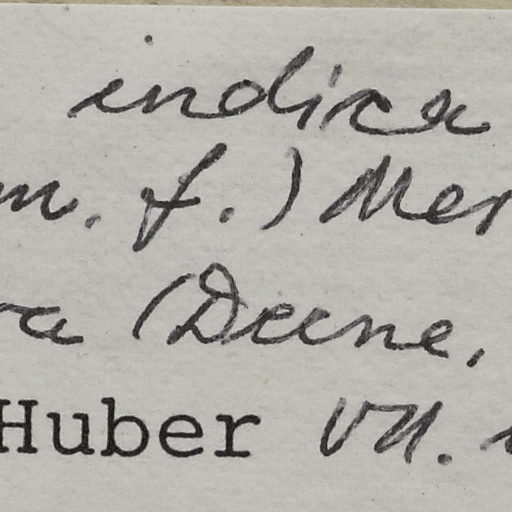 indica
m. f.) Mer
ra (Decne.
Huber VII.